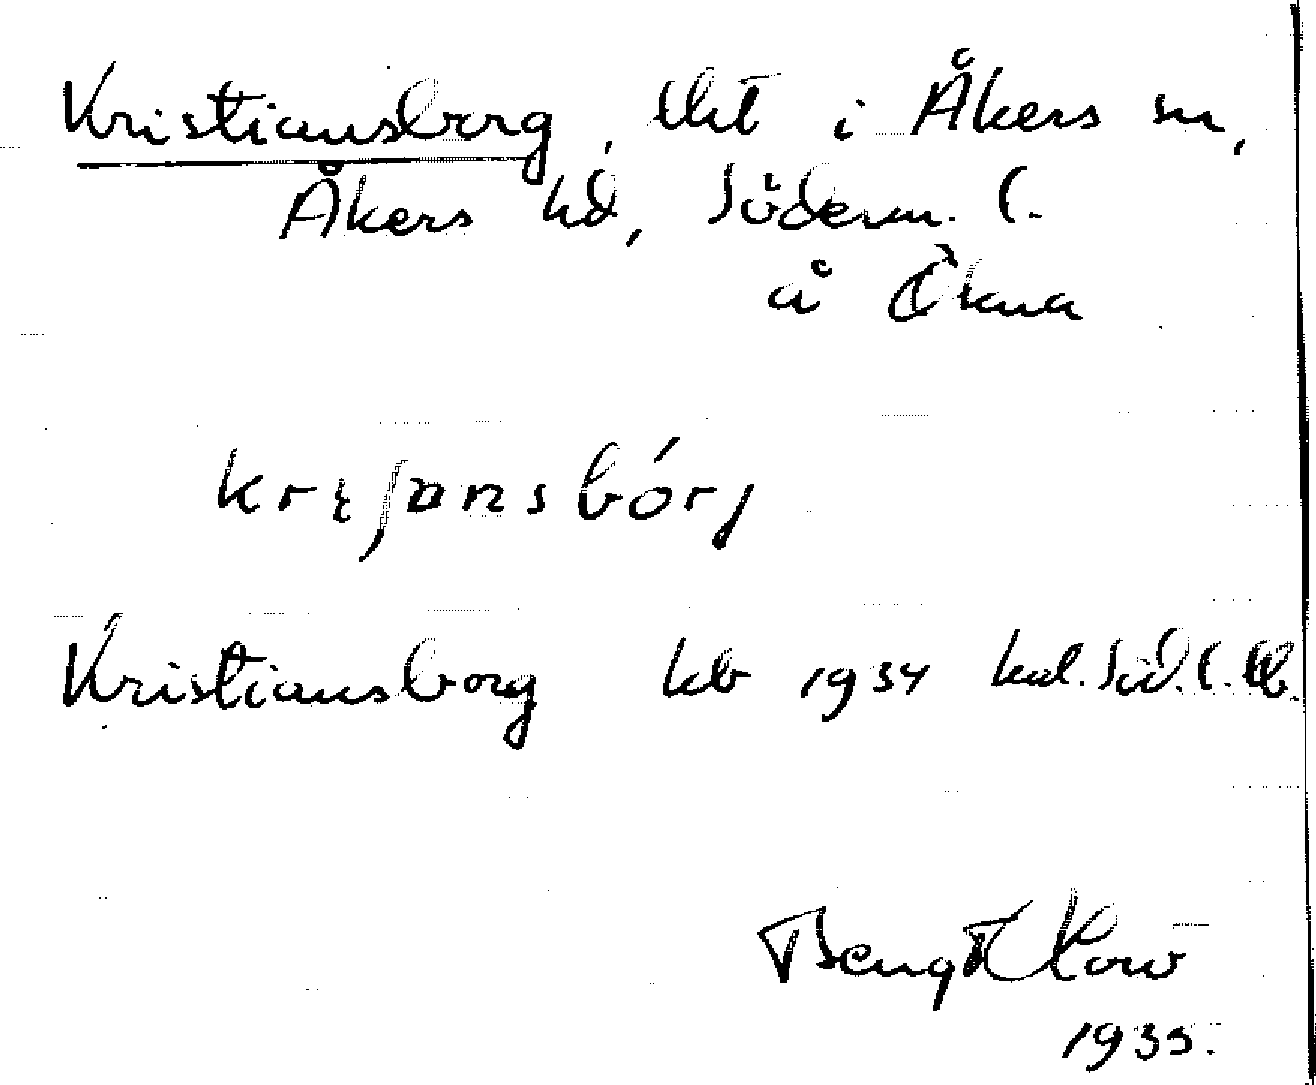 Kristiansborg, lht i Åkers sn,
Åkers hd, Söderm. l.
å Ökna
krıʃɑnsbórj
Kristiansborg kb 1934 kal. Söd. l. lb.
Bengt
1935.